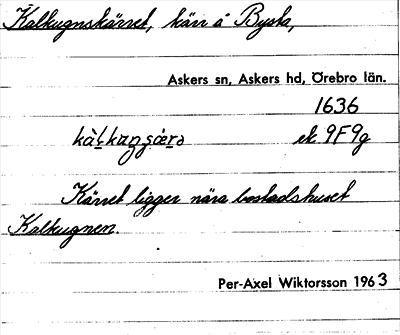 Kalkugnskärret, kärr å Bysta,
Askers sn, Askers hd, Örebro län.
1636
kàlkuŋsæ̀rə ek. 9F9g
Kärret ligger nära bostadshuset
Kalkugnen.
Per-Axel Wiktorsson 1963